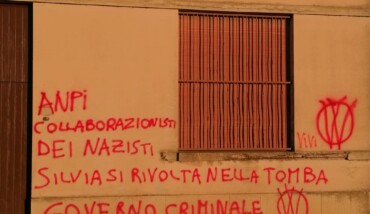 ANPI
COLLABORAZIONISTI
DEI NAZISTI
SILVIA SI RIVOLTA NELLA TOMBA
GOVERNO CRIMINALE
ViVi